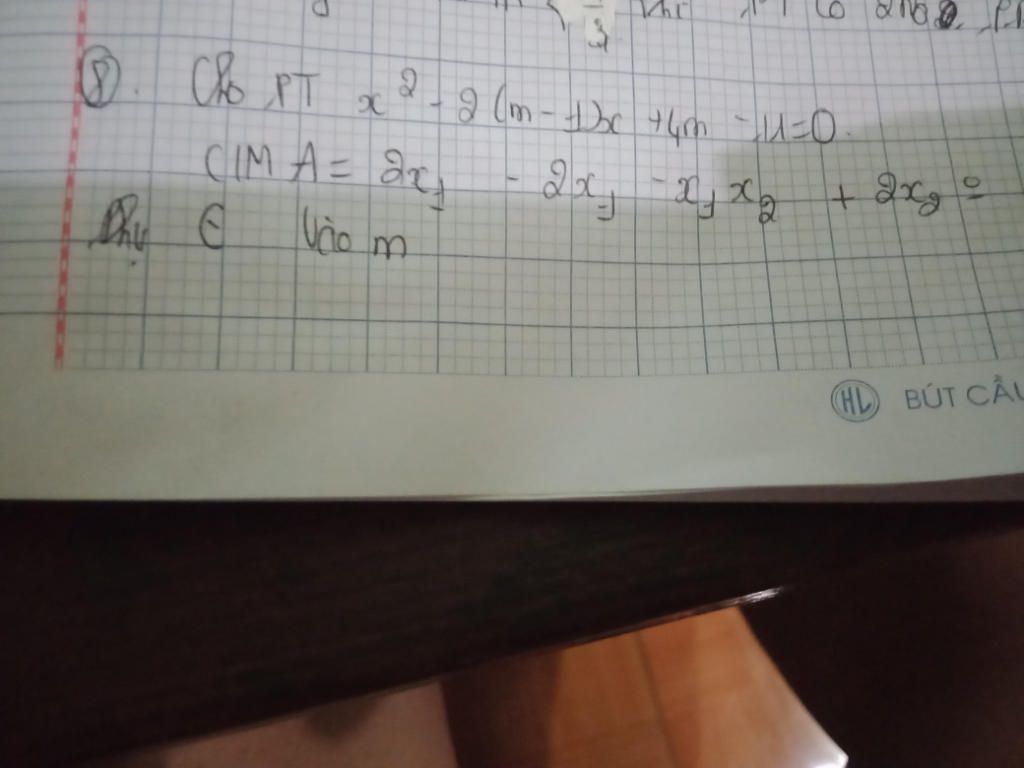 ⑧. Cho PT x² - 2(m-1)x + 4m - 11 = 0.
CIM A = 2x₁ - 2x₁ - x₁x₂ + 2x₂
Phụ ∈ vào m
HL BÚT CẦU